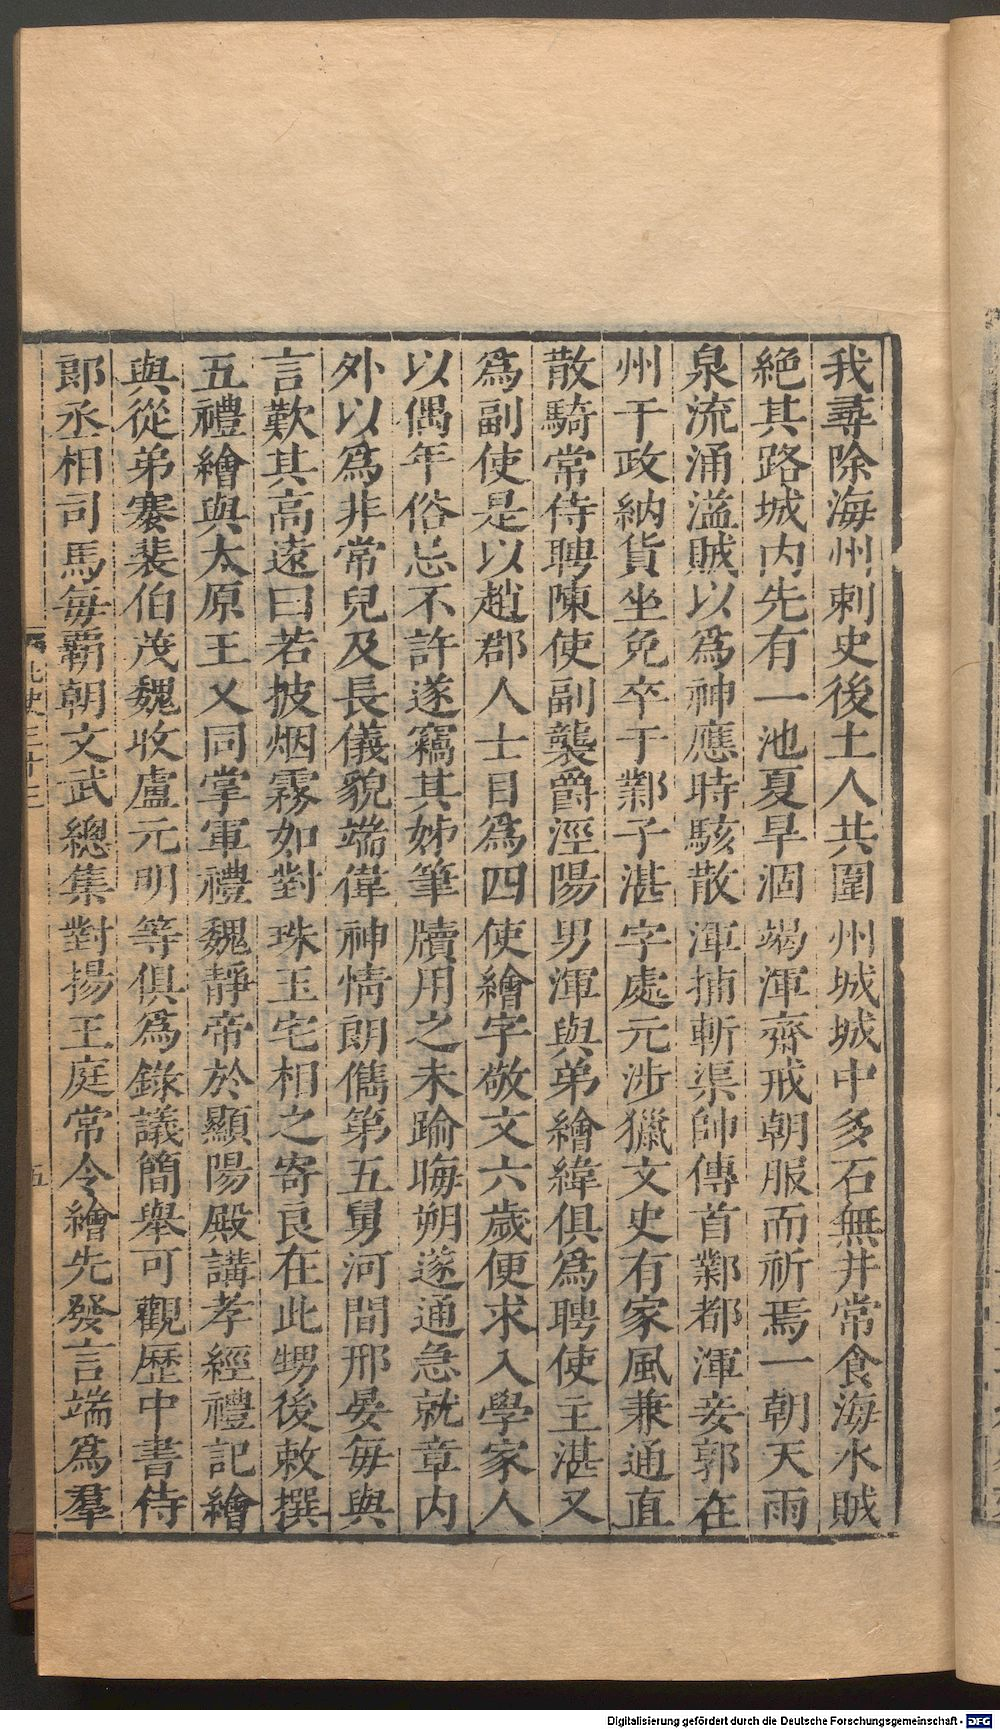 我尋除海州刺史後土人共圍州城城中多石無井常食海水賊
絶其路城内先有一池夏旱涸竭渾齋戒朝服而祈焉一朝天雨
泉流涌溢賊以爲神應時駭散渾捕斬渠帥傳首鄴都渾妾郭在
州干政納貨坐免卒于鄴子湛字處元涉獵文史有家風兼通直
散騎常侍聘陳使副襲爵涇陽男渾與弟繪緯俱爲聘使主湛又
爲副使是以趙郡人士目爲四使繪字敬文六歲便求入學家人
以偶年俗忌不許遂竊其姊筆牘用之未踰晦朔遂通急就章内
外以爲非常兒及長儀貌端偉神情朗儁第五舅河間邢晏每與
言歎其高遠曰若披烟霧如對珠玉宅相之寄良在此甥後敕撰
五禮繪與太原王乂同掌軍禮魏靜帝於顯陽殿講孝經禮記繪
與從弟褰裴伯茂魏收盧元明等俱爲錄議簡舉可觀歷中書侍
郎丞相司馬每霸朝文武總集對揚王庭常令繪先發言端爲羣
北史三十三
五
Digitalisierung gefördert durch die Deutsche Forschungsgemeinschaft - DFG